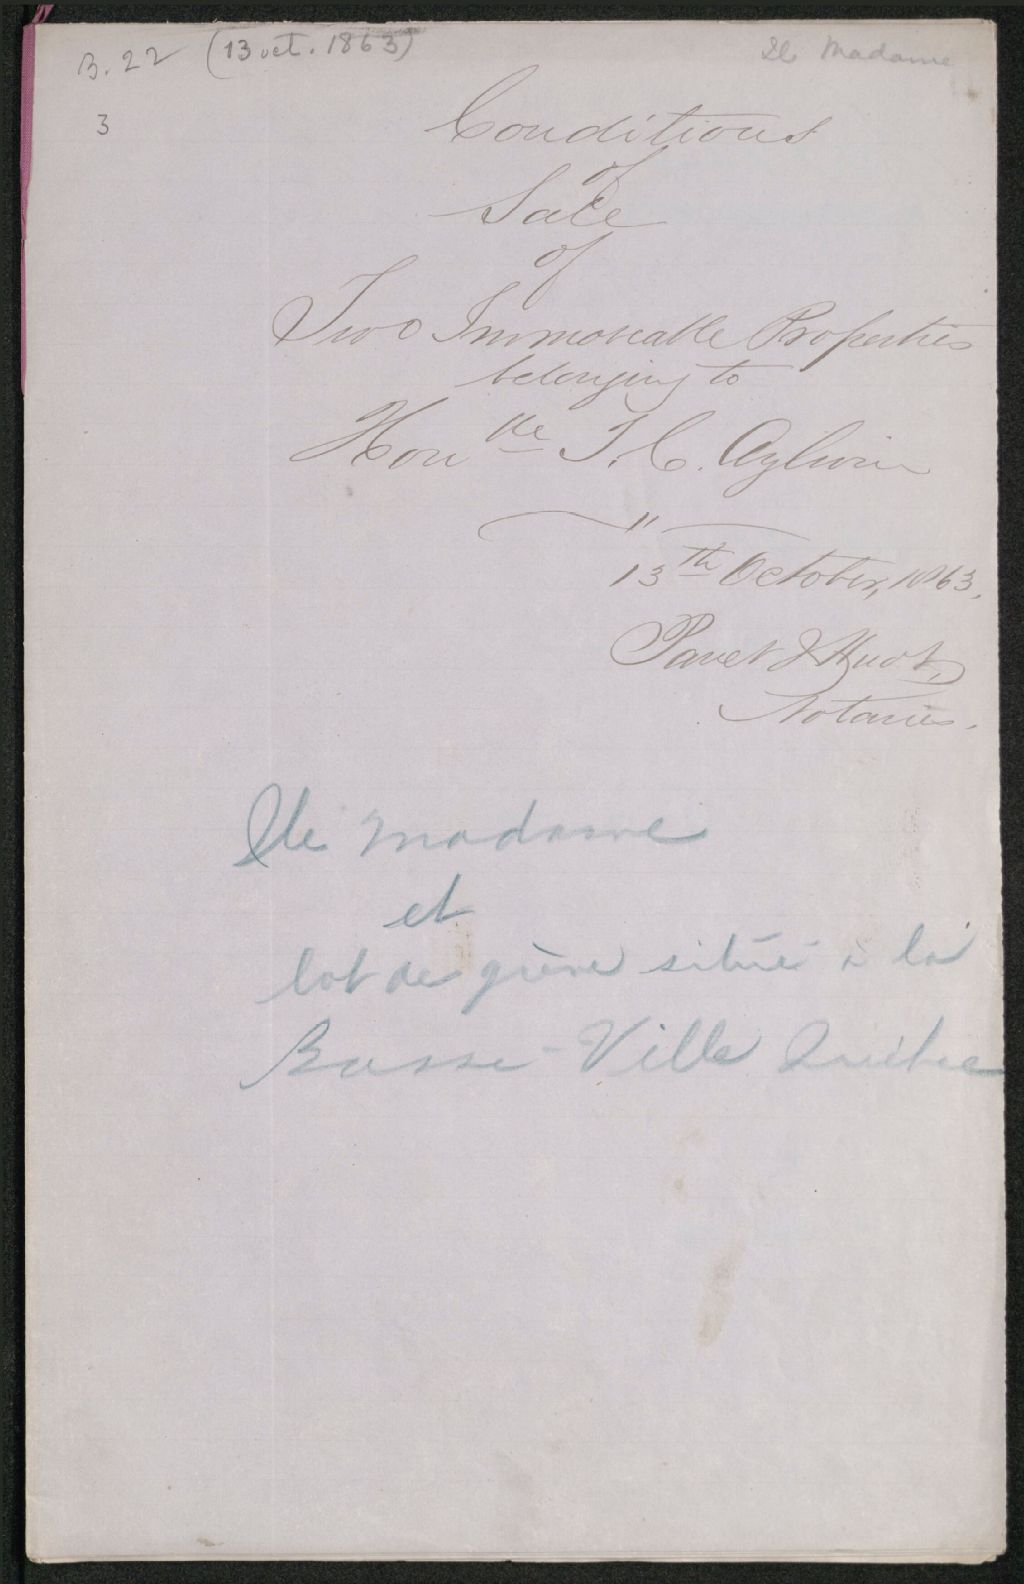 B. 22 (13 oct. 1863) Ile Madame
3
Conditions
of
Sale
of
Two Immoveable Properties
belonging to
Hon ble T. C. Aylwin
"
13th October, 1863.
Panet & Huot,
Notaries.
Ile Madame
et
lot de grève situé à la
Basse-Ville Québec